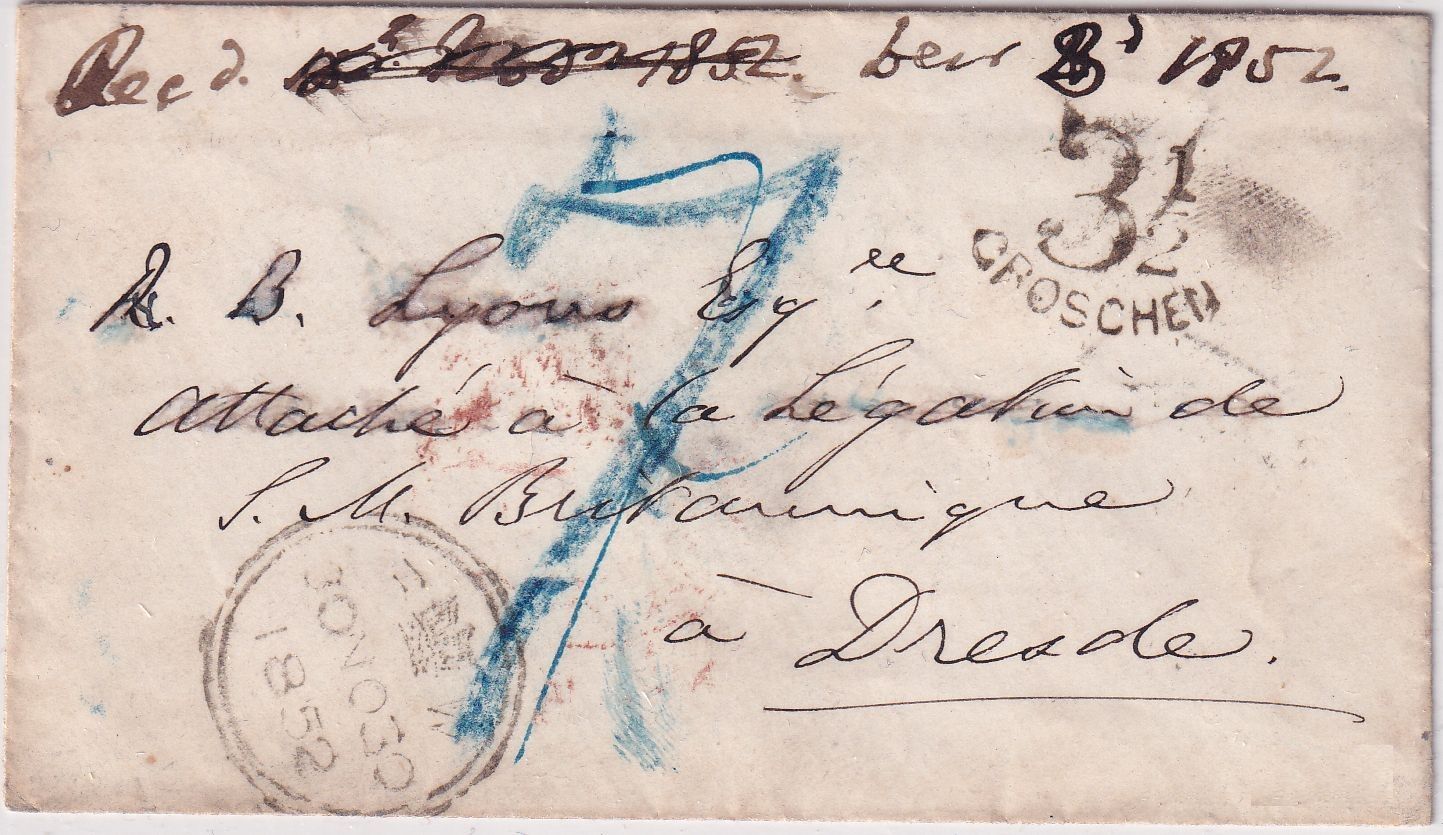 Recd. 1852. Decr 3d 1852.
3 1/2
GROSCHEN
7
R. B. Lyons Esqre
attaché à la Légation de
S. M. Britannique
à Dresde.
30 NO 30
1852